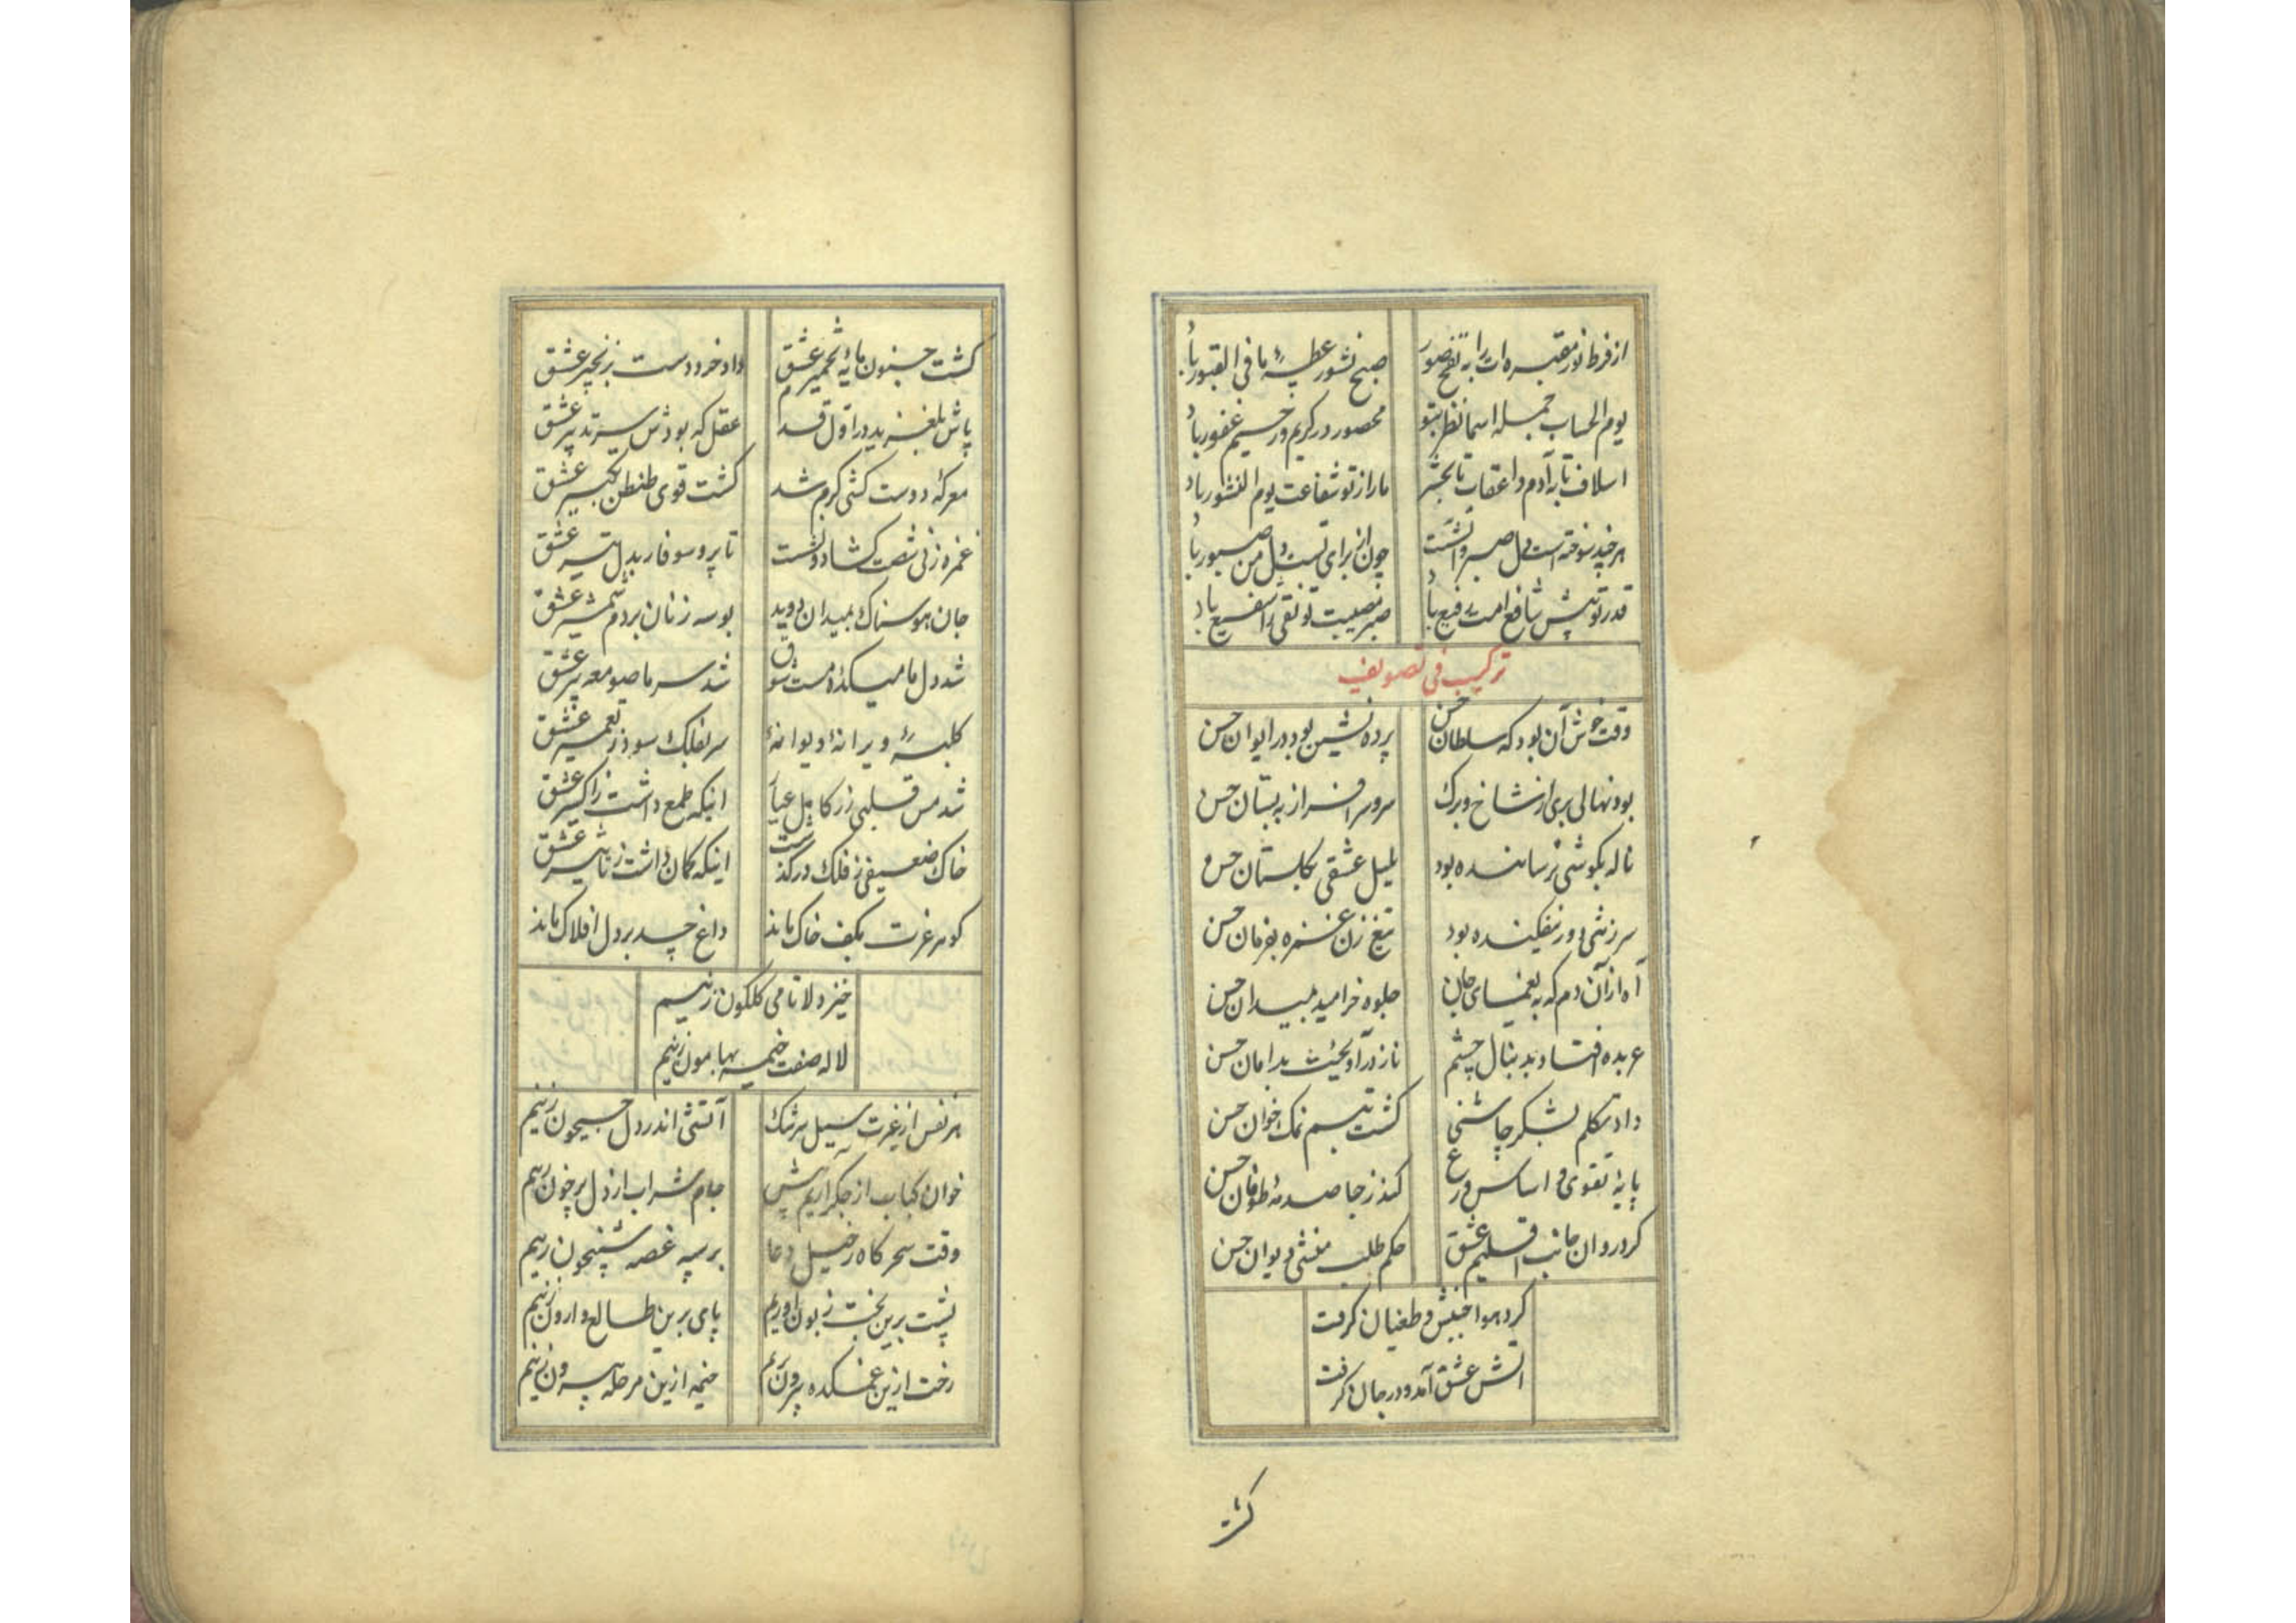 از فرط نور مقبره ات را به نفخ صور
صبح نشور عطیهٔ ما فی القبور باد
یوم الحساب جمله اسما نظر بتو
محصور در کریم و رحیم غفور باد
اسلاف تا به آدم و اعقاب تا بحشر
ما را ز تو شفاعت یوم النشور باد
هر چند سوخته است دل صبر و
چون از برای تست دل من صبور باد
قدر تو پیش شافع امت رفیع باد
صبر مصیبت تو نقی را شفیع باد
ترکیب فی تصویف
وقت خوش آن بود که سلطان حسن
پرده نشین بود در ایوان حسن
بود نهالی بری از شاخ و برک
سرو سرافراز به بستان حسن
ناله بکوشی نرساننده بود
بلبل عشقی بکلستان حسن
سر ز تنی دور نیفکنده بود
تیغ زن غمزه بفرمان حسن
آه از آن دم که به یغمای جان
جلوه خرامید بمیدان حسن
عربده افتاد به دنبال چشم
ناز درآویخت بدامان حسن
داد تکلم بشکر چاشنی
کشت تبسم نمک خوان حسن
پایهٔ تقوی و اساس ورع
کند ز جا صدمهٔ طوفان حسن
کرد روان جانب اقلیم عشق
حکم طلب منشی دیوان حسن
کرد هوا جنبش و طغیان کرفت
اتش عشق آمد و در جان کرفت
کشت
کشت جنون مایهٔ تخمیر عشق
داد خرد دست بزنجیر عشق
پاش بلغزید در اول قدم
عقل که بودش سر تدبیر عشق
معرکهٔ دوست کشی کرم شد
کشت قوی طنطن تکبیر عشق
غمزه زنی شصت کشاد و نشست
تا پر و سوفار بدل تیر عشق
جان هوسناک بمیدان دوید
بوسه زنان بر دم شمشیر عشق
شد دل ما میکدهٔ مست شوق
شد سر ما صومعه پیر عشق
کلبهٔ ویرانهٔ دیوانهٔ
سر بفلک سود ز تعمیر عشق
شد مس قلبی زر کامل عیار
اینکه طمع داشت ز اکسیر عشق
خاک ضعیفی ز فلک در گذشت
اینکه کمان داشت ز تاثیر عشق
کوهر غرت بکف خاک ماند
داغ حسد بر دل افلاک ماند
خیز دلا تا می کلکون زنیم
لاله صفت خیمه بهامون زنیم
هر نفس از غیرت سیل سرشک
آتشی اندر دل جیحون زنیم
خوان کباب از جکر اریم پیش
جام شراب از دل پر خون زنیم
وقت سحرکاه ز خیل دعا
بر سپه غصه شبیخون زنیم
پشت برین بخت زبون اوریم
پای برین طالع وارون زنیم
رخت ازین غمکده بیرون بریم
خیمه ازین مرحله بیرون زنیم